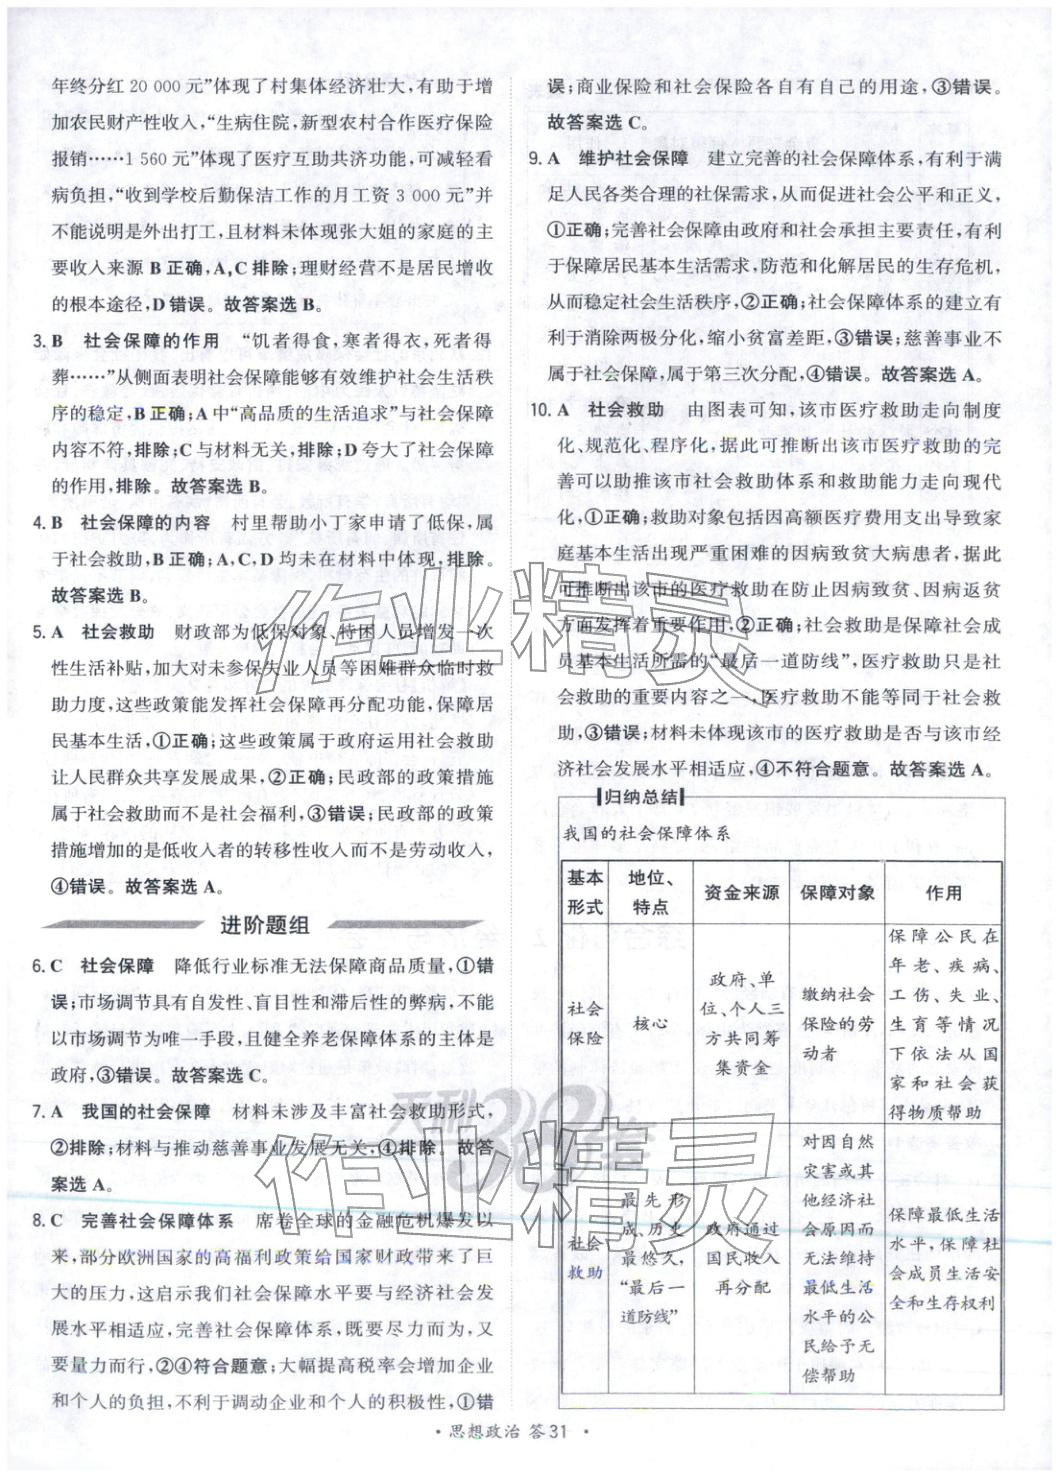 年终分红 20 000 元”体现了村集体经济壮大,有助于增
加农民财产性收入,“生病住院,新型农村合作医疗保险
报销……1 560 元”体现了医疗互助共济功能,可减轻看
病负担,“收到学校后勤保洁工作的月工资 3 000 元”并
不能说明是外出打工,且材料未体现张大姐的家庭的主
要收入来源 B 正确,A,C 排除;理财经营不是居民增收
的根本途径,D 错误。故答案选 B。
3. B 社会保障的作用 “饥者得食,寒者得衣,死者得
葬……”从侧面表明社会保障能够有效维护社会生活秩
序的稳定,B 正确;A 中“高品质的生活追求”与社会保障
内容不符,排除;C 与材料无关,排除;D 夸大了社会保障
的作用,排除。故答案选 B。
4. B 社会保障的内容 村里帮助小丁家申请了低保,属
于社会救助,B 正确;A,C,D 均未在材料中体现,排除。
故答案选 B。
5. A 社会救助 财政部为低保对象、特困人员增发一次
性生活补贴,加大对未参保失业人员等困难群众临时救
助力度,这些政策能发挥社会保障再分配功能,保障居
民基本生活,①正确;这些政策属于政府运用社会救助
让人民群众共享发展成果,②正确;民政部的政策措施
属于社会救助而不是社会福利,③错误;民政部的政策
措施增加的是低收入者的转移性收入而不是劳动收入,
④错误。故答案选 A。
进阶题组
6. C 社会保障 降低行业标准无法保障商品质量,①错
误;市场调节具有自发性、盲目性和滞后性的弊病,不能
以市场调节为唯一手段,且健全养老保障体系的主体是
政府,③错误。故答案选 C。
7. A 我国的社会保障 材料未涉及丰富社会救助形式,
②排除;材料与推动慈善事业发展无关,④排除。故答
案选 A。
8. C 完善社会保障体系 席卷全球的金融危机爆发以
来,部分欧洲国家的高福利政策给国家财政带来了巨
大的压力,这启示我们社会保障水平要与经济社会发
展水平相适应,完善社会保障体系,既要尽力而为,又
要量力而行,②④符合题意;大幅提高税率会增加企业
和个人的负担,不利于调动企业和个人的积极性,①错
误;商业保险和社会保险各自有自己的用途,③错误。
故答案选 C。
9. A 维护社会保障 建立完善的社会保障体系,有利于满
足人民各类合理的社保需求,从而促进社会公平和正义,
①正确;完善社会保障由政府和社会承担主要责任,有利
于保障居民基本生活需求,防范和化解居民的生存危机,
从而稳定社会生活秩序,②正确;社会保障体系的建立有
利于消除两极分化,缩小贫富差距,③错误;慈善事业不
属于社会保障,属于第三次分配,④错误。故答案选 A。
10. A 社会救助 由图表可知,该市医疗救助走向制度
化、规范化、程序化,据此可推断出该市医疗救助的完
善可以助推该市社会救助体系和救助能力走向现代
化,①正确;救助对象包括因高额医疗费用支出导致家
庭基本生活出现严重困难的因病致贫大病患者,据此
可推断出该市的医疗救助在防止因病致贫、因病返贫
方面发挥着重要作用,②正确;社会救助是保障社会成
员基本生活所需的“最后一道防线”,医疗救助只是社
会救助的重要内容之一,医疗救助不能等同于社会救
助,③错误;材料未体现该市的医疗救助是否与该市经
济社会发展水平相适应,④不符合题意。故答案选 A。
归纳总结
我国的社会保障体系
基本形式 地位、特点 资金来源 保障对象 作用
社会保险 核心 政府、单位、个人三方共同筹集资金 缴纳社会保险的劳动者 保障公民在年老、疾病、工伤、失业、生育等情况下依法从国家和社会获得物质帮助
社会救助 最先形成、历史最悠久,“最后一道防线” 政府通过国民收入再分配 对因自然灾害或其他经济社会原因而无法维持最低生活水平的公民给予无偿帮助 保障最低生活水平,保障社会成员生活安全和生存权利
作业精灵
天利38套
作业精灵
· 思想政治 答 31 ·